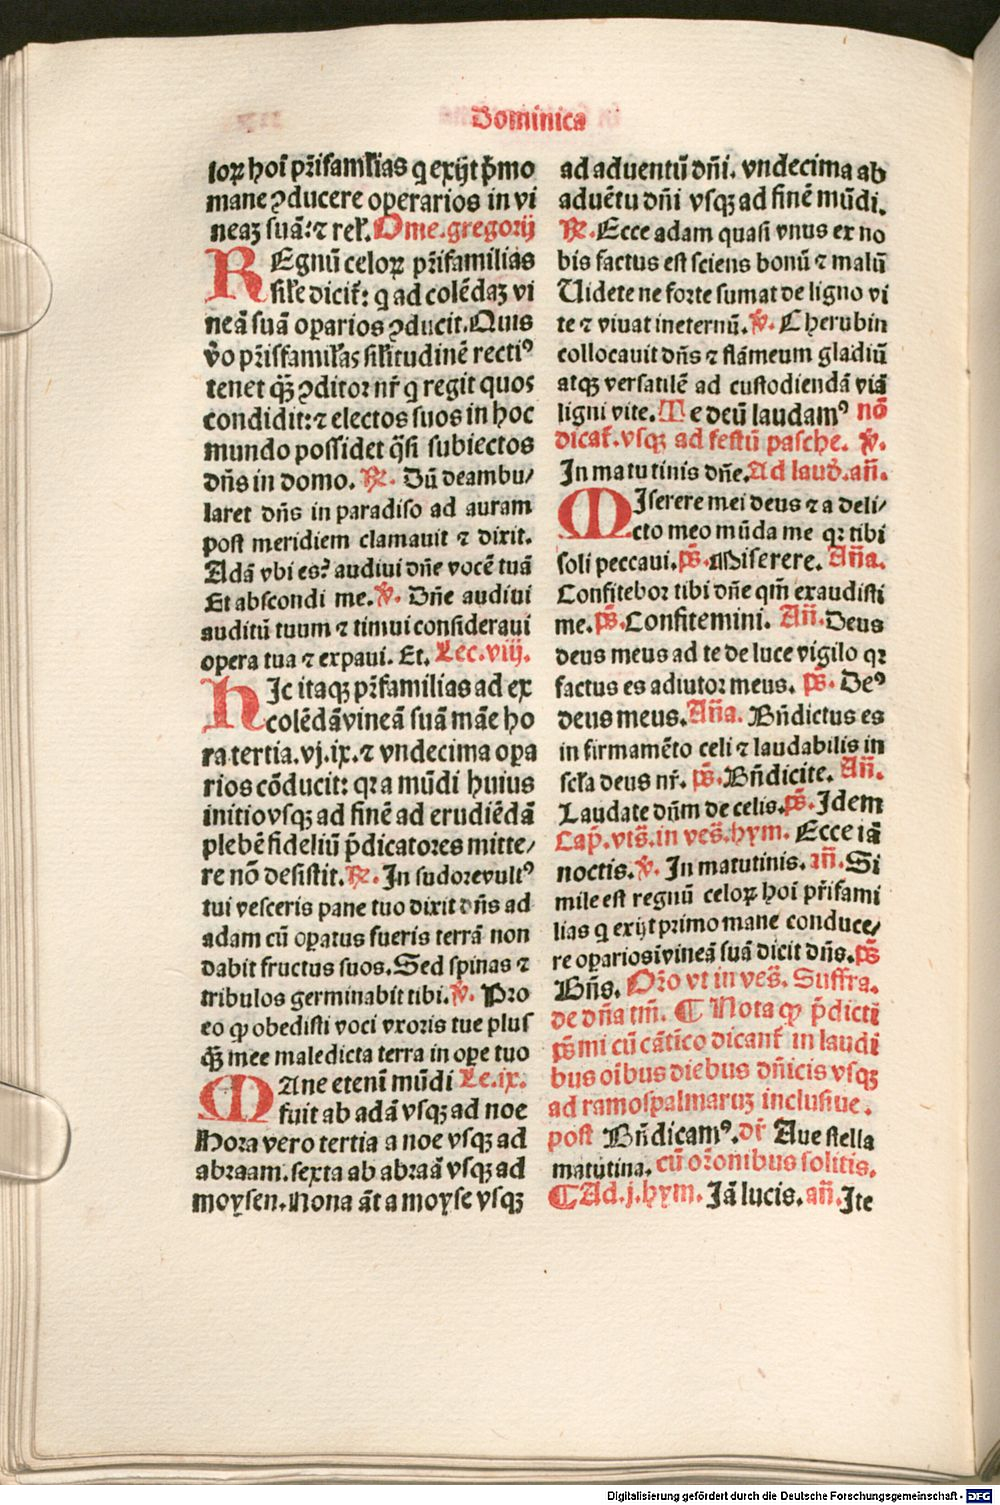 Dominica
lorꝝ hoi᷈ pr̃ifamłias q exijt p̃mo
mane ꝯducere operarios in vi
neaꝫ suã: ⁊ reł. Ome. gregorij
REgnũ celorꝝ pr̃ifamilias
siłe dicit̃: q ad colẽdaꝫ vi
neã suã oꝑarios ꝯducit. Quis
ṽo pr̃isfamiłas siłitudinẽ rectiꝰ
tenet q̃ꝫ ꝯditor nr̃ q regit quos
condidit: ⁊ electos suos in hoc
mundo possidet q̃si subiectos
dñs in domo. ℞. Dũ deambu/
laret dñs in paradiso ad auram
post meridiem clamauit ⁊ dixit.
Adã vbi es? audiui dñe vocẽ tuã
Et abscondi me. ℣. Dñe audiui
auditũ tuum ⁊ timui consideraui
opera tua ⁊ expaui. Et. Lec. viij.
HIc itaqꝫ pr̃familias ad ex
colẽdã vineã suã mãe ho
ra tertia. vj. ix. ⁊ vndecima oꝑa
rios cõducit: qꝛ a mũdi huius
initio vsqꝫ ad finẽ ad erudiẽdã
plebẽ fideliũ p̃dicatores mitte/
re nõ desistit. ℞. In sudore vultꝰ
tui vesceris pane tuo dixit dñs ad
adam cũ oꝑatus fueris terrã non
dabit fructus suos. Sed spinas ⁊
tribulos germinabit tibi. ℣. Pro
eo ꝙ obedisti voci vxoris tue plus
q̃ꝫ mee maledicta terra in oꝑe tuo
MAne etenĩ mũdi Le. ix.
fuit ab adã vsqꝫ ad noe
Hora vero tertia a noe vsqꝫ ad
abraam. sexta ab abraã vsqꝫ ad
moysen. Nona ãt a moyse vsqꝫ
ad aduentũ dñi. vndecima ab
aduẽtu dñi vsqꝫ ad finẽ mũdi.
℞. Ecce adam quasi vnus ex no
bis factus est sciens bonũ ⁊ malũ
Uidete ne forte sumat de ligno vi
te ⁊ viuat ineternũ. ℣. Cherubin
collocauit dñs ⁊ flãmeum gladiũ
atqꝫ versatilẽ ad custodiendã viã
ligni vite. Te deũ laudamꝰ nõ
dicat̃. vsqꝫ ad festũ pasche. ℣.
In matutinis dñe. Ad laud̃. añ.
MIserere mei deus ⁊ a deli/
cto meo mũda me qꝛ tibi
soli peccaui. ps̃. Miserere. Aña.
Confitebor tibi dñe qm̃ exaudisti
me. ps̃. Confitemini. Añ. Deus
deus meus ad te de luce vigilo qꝛ
factus es adiutor meus. ps̃. Deꝰ
deus meus. Aña. Bñdictus es
in firmamẽto celi ⁊ laudabilis in
scła deus nr̃. ps̃. Bñdicite. Añ.
Laudate dñm de celis. ps̃. Idem
Cap̃. vts̃. in ves̃. hym. Ecce iã
noctis. ℣. In matutinis. añ. Si
mile est regnũ celorꝝ hoĩ pr̃ifami
lias q exijt primo mane conduce/
re oꝑarios ĩ vineã suã dicit dñs. ps̃
Bñs. Or̃o vt in ves̃. Suffra.
de dña tm̃. ¶ Nota ꝙ p̃dicti
ps̃mi cũ cãtico dicant̃ in laudi
bus oĩbus diebus dñicis vsqꝫ
ad ramospalmaruꝫ inclusiue.
post Bñdicamꝰ. dr̃ Aue stella
matutina. cũ or̃onibus solitis.
¶ Ad. j. hym. Iã lucis. añ. Ite
Digitalisierung gefördert durch die Deutsche Forschungsgemeinschaft - DFG